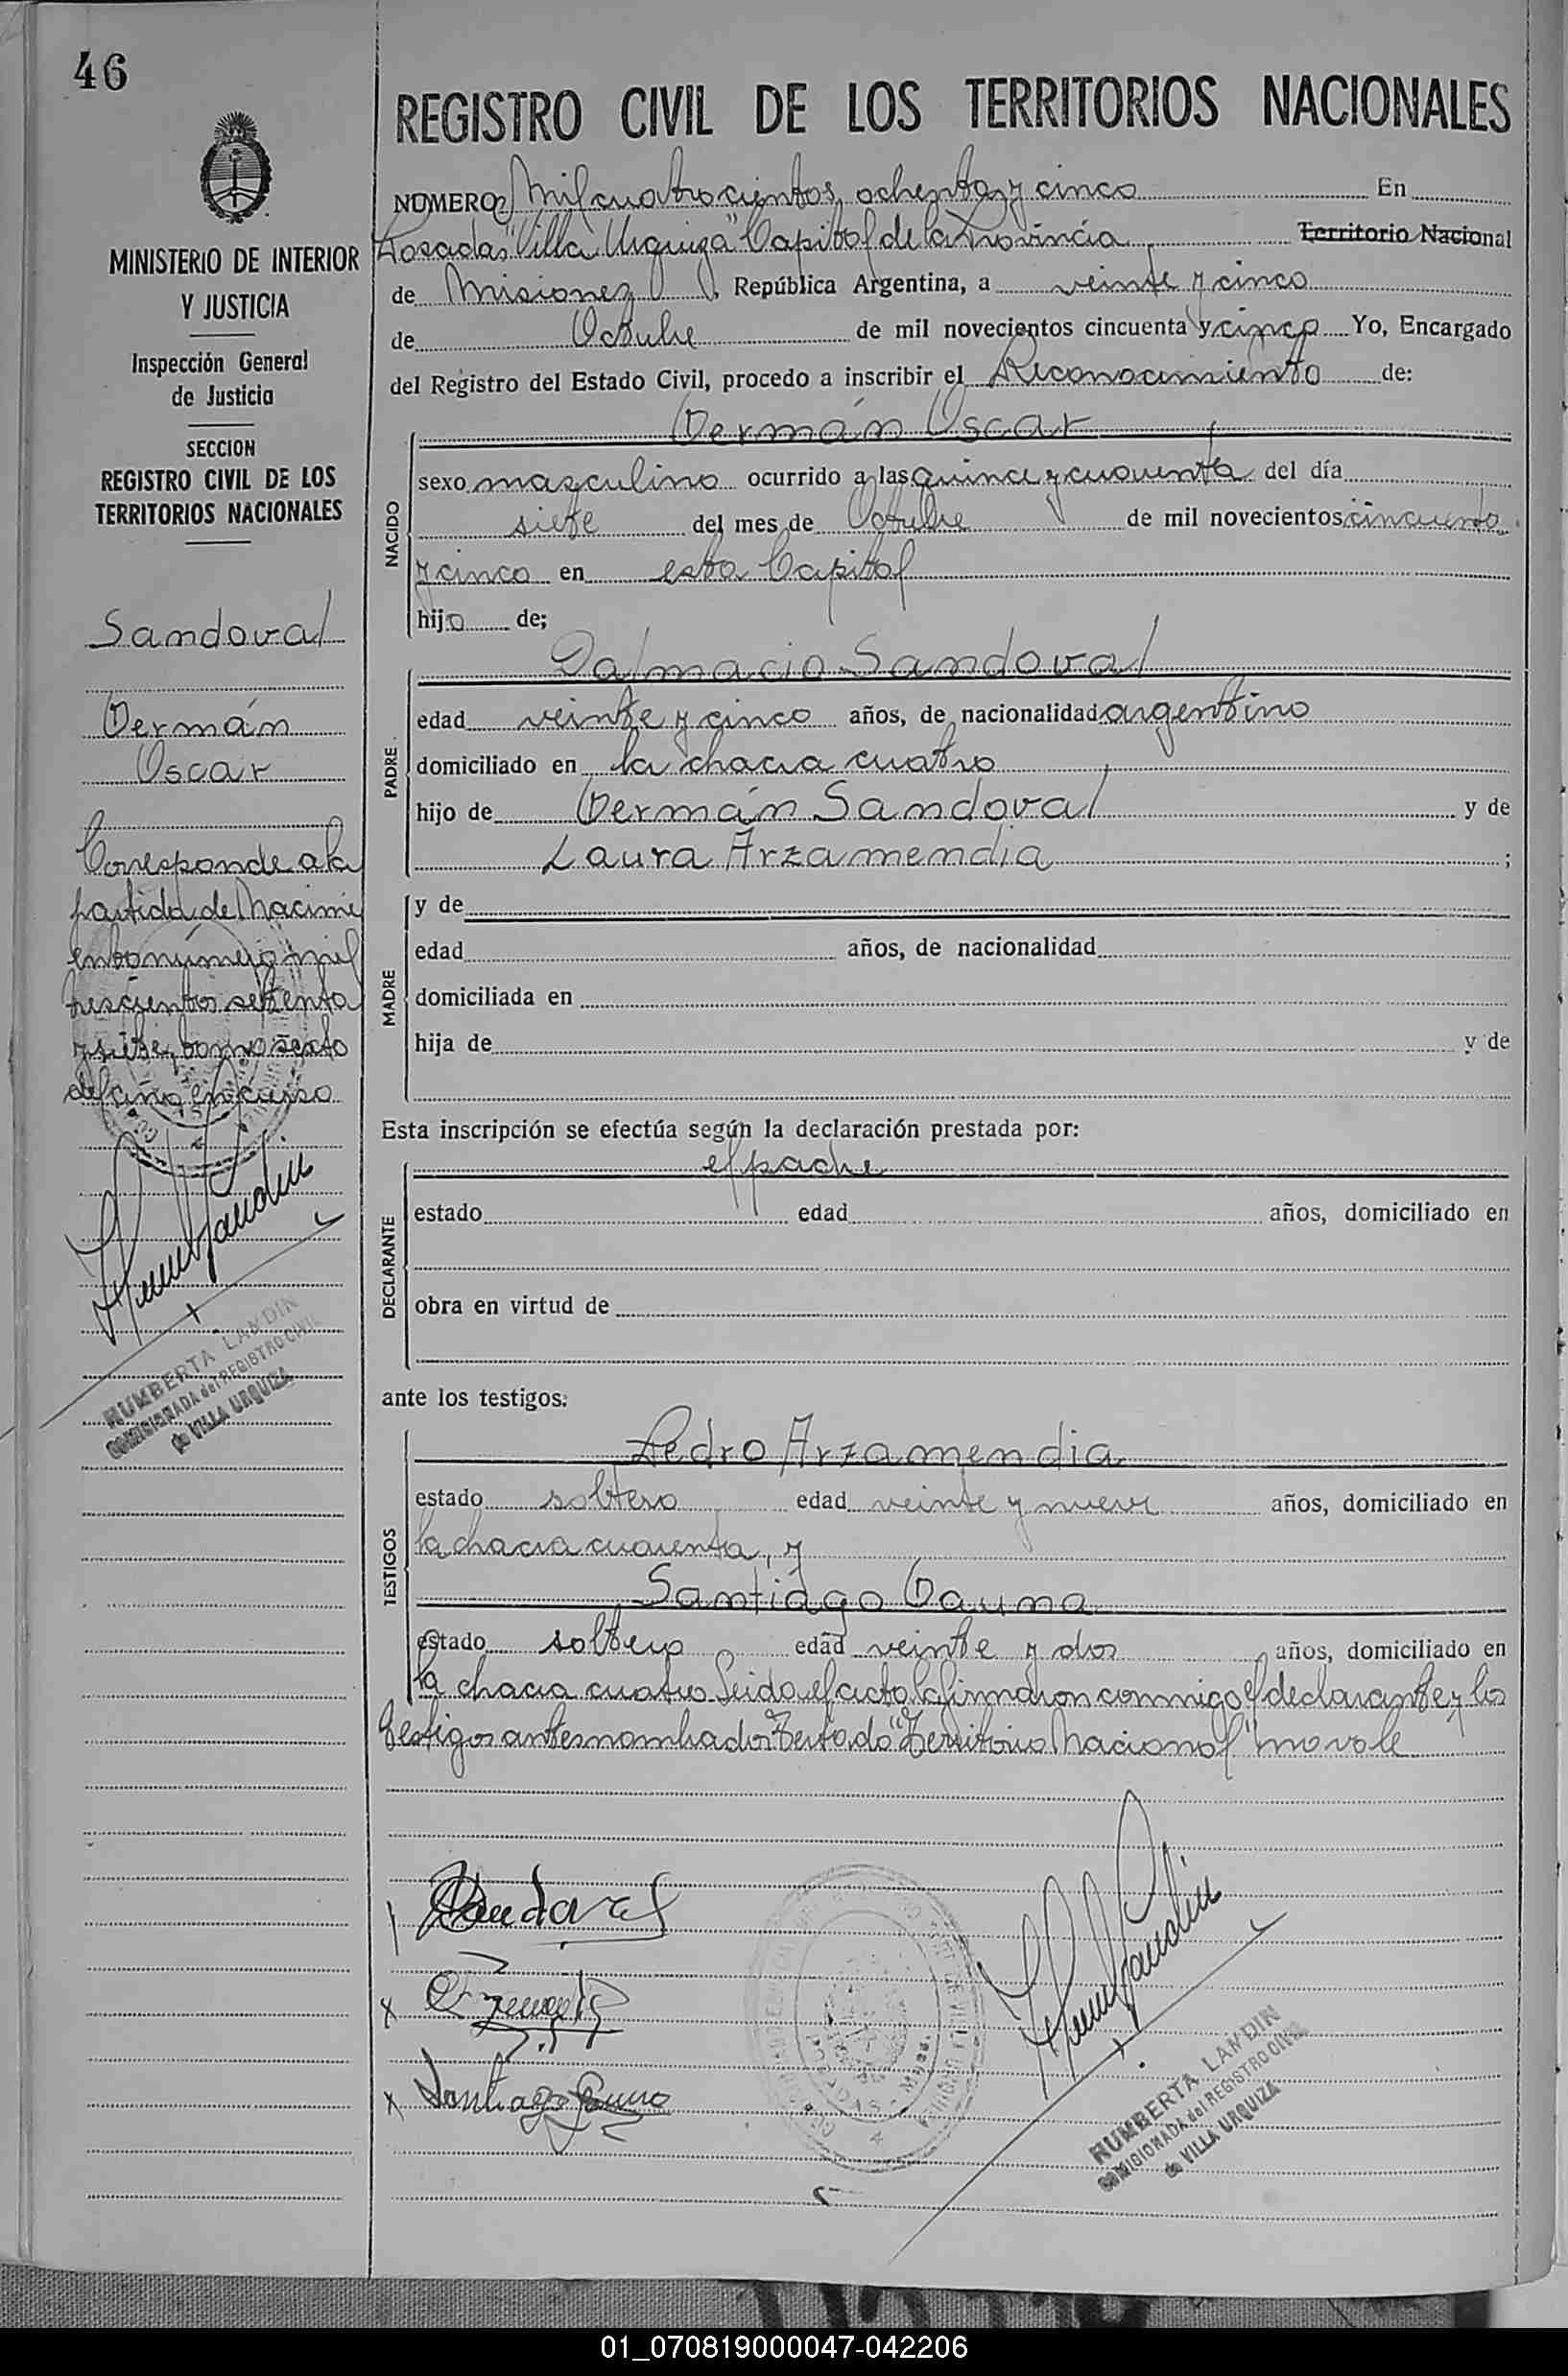 46
MINISTERIO DE INTERIOR
Y JUSTICIA
Inspección General
de Justicia
SECCION
REGISTRO CIVIL DE LOS
TERRITORIOS NACIONALES
Sandoval
Germán
Oscar
Corresponde a la
partida de Nacimi
ento número mil
trescientos setenta
y siete, tomo sexto
del año en curso
HUMBERTA LANDIN
COMISIONADA del REGISTRO CIVIL
de VILLA URQUIZA
REGISTRO CIVIL DE LOS TERRITORIOS NACIONALES
NUMERO Mil cuatrocientos, ochenta y cinco En
Posadas "Villa Urquiza" Capital de la Provincia Territorio Nacional
de Misiones, República Argentina, a veinte y cinco
de Octubre de mil novecientos cincuenta y cinco Yo, Encargado
del Registro del Estado Civil, procedo a inscribir el Reconocimiento de:
NACIDO
Germán Oscar
sexo masculino ocurrido a las quince y cuarenta del día
siete del mes de Octubre de mil novecientos cincuenta
y cinco en esta Capital
hijo de;
PADRE
Dalmacio Sandoval
edad veinte y cinco años, de nacionalidad argentino
domiciliado en la chacra cuatro
hijo de Germán Sandoval y de
Laura Arzamendia ;
MADRE
y de
edad años, de nacionalidad
domiciliada en
hija de y de
Esta inscripción se efectúa según la declaración prestada por:
DECLARANTE
el padre
estado edad años, domiciliado en
obra en virtud de
ante los testigos:
TESTIGOS
Pedro Arzamendia
estado soltero edad veinte y nueve años, domiciliado en
la chacra cuarenta, y
Santiago Gauna
estado soltero edad veinte y dos años, domiciliado en
la chacra cuatro Leida el acta la firmaron conmigo el declarante y los
testigos antes nombrados Testado "Territorio Nacional" no vale
Sandoval
Santiago Gauna
HUMBERTA LANDIN
COMISIONADA del REGISTRO CIVIL
de VILLA URQUIZA
01_070819000047-042206